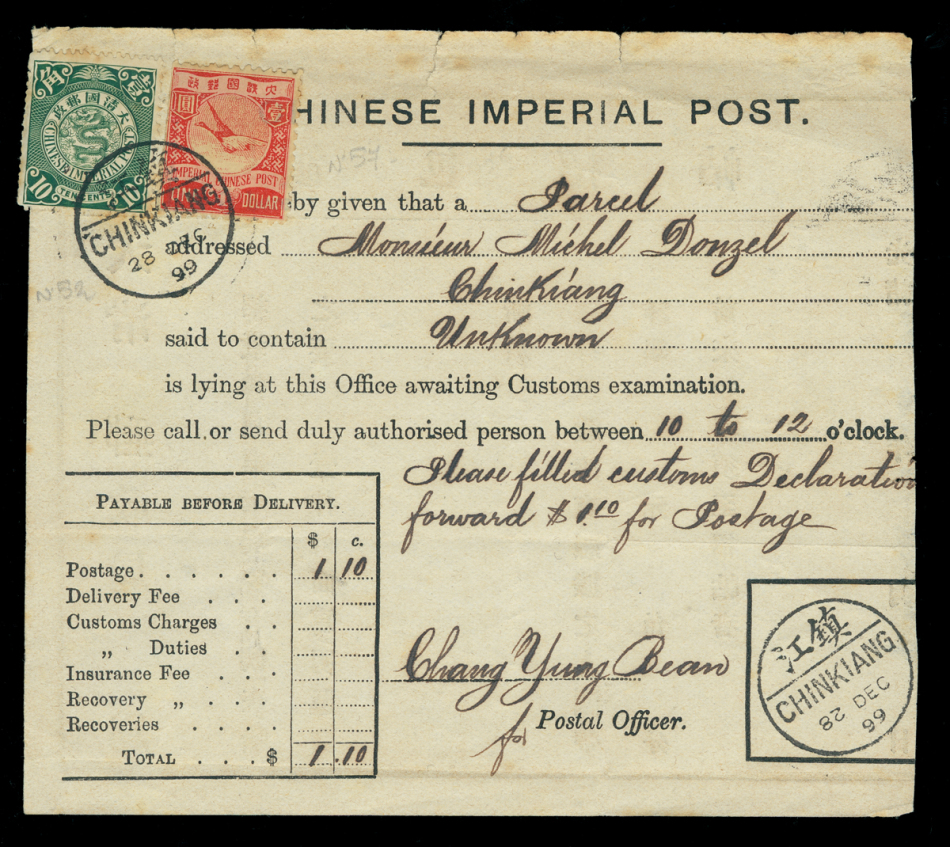 CHINESE IMPERIAL POST.
角 壹
大清國郵政
CHINESE IMPERIAL POST
10 TEN CENTS 10
大清國郵政
圓 壹
IMPERIAL CHINESE POST
DOLLAR
Nº 54
Nº 52
CHINKIANG
28 DEC
99
by given that a Parcel
addressed Monsieur Michel Donzel
Chinkiang
said to contain Unknown
is lying at this Office awaiting Customs examination.
Please call or send duly authorised person between 10 to 12 o'clock.
Please filled customs Declaration
forward $ 1.10 for Postage
PAYABLE BEFORE DELIVERY.
$ c.
Postage . . . . . . 1 10
Delivery Fee . . .
Customs Charges . .
„ Duties . .
Insurance Fee . . .
Recovery „ . . .
Recoveries . . . .
TOTAL . . . $ 1 .10
Chang Yung Bean
for Postal Officer.
江鎮
CHINKIANG
82 DEC
99